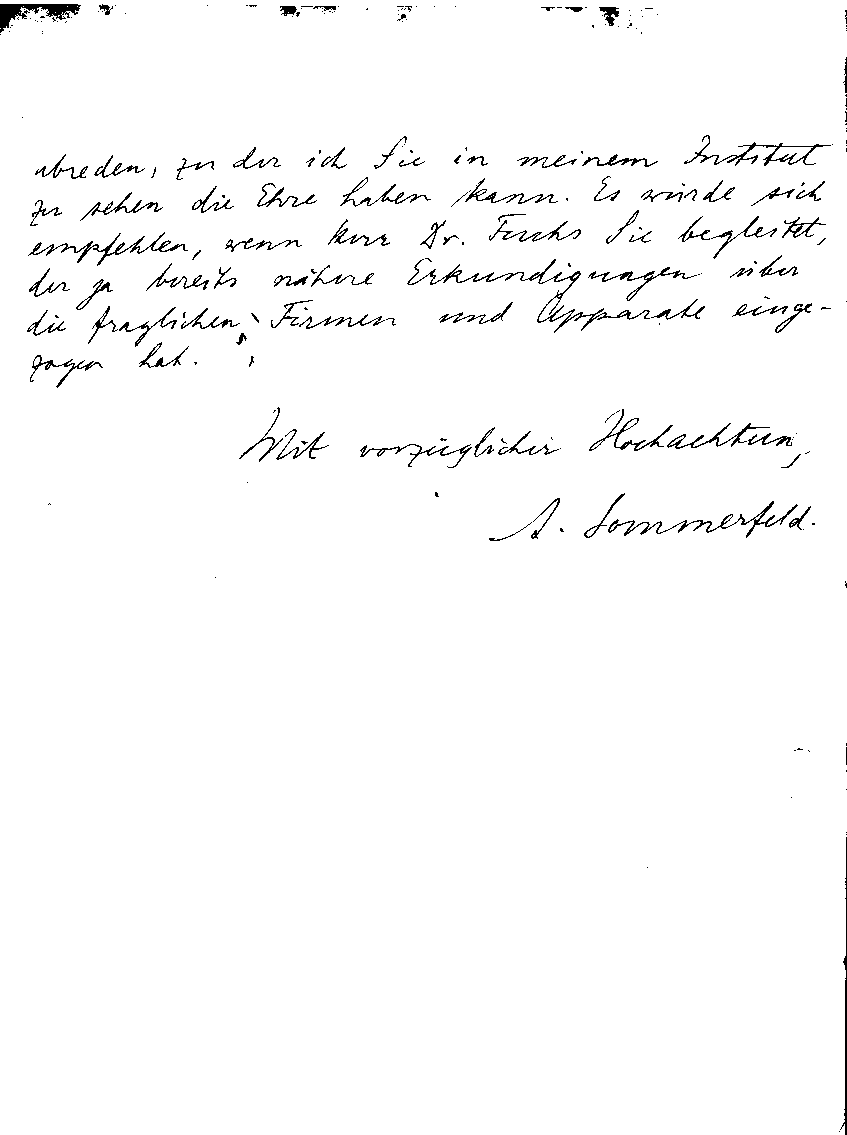 abreden, zu der ich Sie in meinem Institut
zu sehen die Ehre haben kann. Es würde sich
empfehlen, wenn Herr Dr. Fuchs Sie begleitet,
der ja bereits nähere Erkundigungen über
die fraglichen Firmen und Apparate einge-
zogen hat.
Mit vorzüglicher Hochachtung,
A. Sommerfeld.